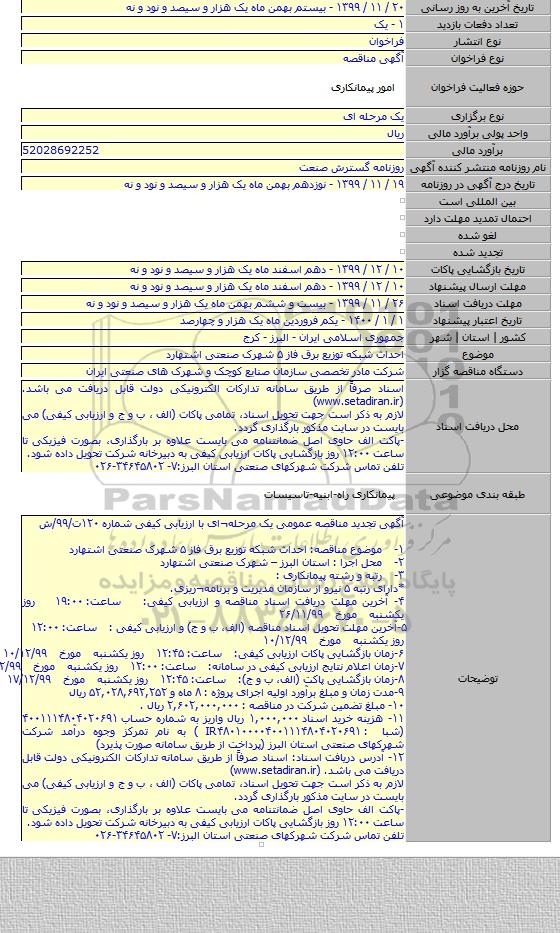 تاریخ آخرین به روز رسانی ۲۰ / ۱۱ / ۱۳۹۹ - بیستم بهمن ماه یک هزار و سیصد و نود و نه
تعداد دفعات بازدید ۱ - یک
نوع انتشار فراخوان
نوع فراخوان آگهی مناقصه
حوزه فعالیت فراخوان امور پیمانکاری
نوع برگزاری یک مرحله ای
واحد پولی برآورد مالی ریال
برآورد مالی 52028692252
نام روزنامه منتشر کننده آگهی روزنامه گسترش صنعت
تاریخ درج آگهی در روزنامه ۱۹ / ۱۱ / ۱۳۹۹ - نوزدهم بهمن ماه یک هزار و سیصد و نود و نه
بین المللی است
احتمال تمدید مهلت دارد
لغو شده
تجدید شده
تاریخ بازگشایی پاکات ۱۰ / ۱۲ / ۱۳۹۹ - دهم اسفند ماه یک هزار و سیصد و نود و نه
مهلت ارسال پیشنهاد ۱۰ / ۱۲ / ۱۳۹۹ - دهم اسفند ماه یک هزار و سیصد و نود و نه
مهلت دریافت اسناد ۲۶ / ۱۱ / ۱۳۹۹ - بیست و ششم بهمن ماه یک هزار و سیصد و نود و نه
تاریخ اعتبار پیشنهاد ۱ / ۱ / ۱۴۰۰ - یکم فروردین ماه یک هزار و چهارصد
کشور | استان | شهر جمهوری اسلامی ایران - البرز - کرج
موضوع احداث شبکه توزیع برق فاز ۵ شهرک صنعتی اشتهارد
دستگاه مناقصه گزار شرکت مادر تخصصی سازمان صنایع کوچک و شهرک های صنعتی ایران
محل دریافت اسناد
اسناد صرفاً از طریق سامانه تدارکات الکترونیکی دولت قابل دریافت می باشد.
(www.setadiran.ir)
لازم به ذکر است جهت تحویل اسناد، تمامی پاکات (الف ، ب و ج و ارزیابی کیفی) می
بایست در سایت مذکور بارگذاری گردد.
-پاکت الف حاوی اصل ضمانتنامه می بایست علاوه بر بارگذاری، بصورت فیزیکی تا
ساعت ۱۲:۰۰ روز بازگشایی پاکات ارزیابی کیفی به دبیرخانه شرکت تحویل داده شود.
تلفن تماس شرکت شهرکهای صنعتی استان البرز:۷- ۳۴۶۴۵۸۰۲-۰۲۶
طبقه بندی موضوعی پیمانکاری راه-ابنیه-تاسیسات
ParsNamadData
توضیحات
آگهی تجدید مناقصه عمومی یک مرحله¬ای با ارزیابی کیفی شماره ۱۲۰ت/۹۹/ش
۱- موضوع مناقصه: احداث شبکه توزیع برق فاز ۵ شهرک صنعتی اشتهارد
۲- محل اجرا : استان البرز – شهرک صنعتی اشتهارد
۳- رتبه و رشته پیمانکاری :
*دارای رتبه ۵ نیرو از سازمان مدیریت و برنامه¬ریزی.
۴- آخرین مهلت دریافت اسناد مناقصه و ارزیابی کیفی: ساعت: ۱۹:۰۰ روز
یکشنبه مورخ ۲۶/۱۱/۹۹
۵-آخرین مهلت تحویل اسناد مناقصه (الف، ب و ج) و ارزیابی کیفی : ساعت: ۱۲:۰۰
روز یکشنبه مورخ ۱۰/۱۲/۹۹
۶-زمان بازگشایی پاکات ارزیابی کیفی: ساعت: ۱۲:۴۵ روز یکشنبه مورخ ۱۰/۱۲/۹۹
۷-زمان اعلام نتایج ارزیابی کیفی در سامانه: ساعت: ۱۲:۰۰ روز یکشنبه مورخ
۸-زمان بازگشایی پاکت (الف، ب و ج): ساعت: ۱۲:۴۵ روز یکشنبه مورخ ۱۷/۱۲/۹۹
۹-مدت زمان و مبلغ برآورد اولیه اجرای پروژه : ۸ ماه و ۵۲,۰۲۸,۶۹۲,۲۵۲ ریال
۱۰- مبلغ تضمین شرکت در مناقصه : ۲,۶۰۲,۰۰۰,۰۰۰ ریال .
۱۱- هزینه خرید اسناد ۱,۰۰۰,۰۰۰ ریال واریز به شماره حساب ۴۰۰۱۱۱۴۸۰۴۰۲۰۶۹۱
(شبا : IR۴۸۰۱۰۰۰۰۴۰۰۱۱۱۴۸۰۴۰۲۰۶۹۱ ) به نام تمرکز وجوه درآمد شرکت
شهرکهای صنعتی استان البرز (پرداخت از طریق سامانه صورت پذیرد)
۱۲- آدرس دریافت اسناد: اسناد صرفاً از طریق سامانه تدارکات الکترونیکی دولت قابل
دریافت می باشد. (www.setadiran.ir)
لازم به ذکر است جهت تحویل اسناد، تمامی پاکات (الف ، ب و ج و ارزیابی کیفی) می
بایست در سایت مذکور بارگذاری گردد.
-پاکت الف حاوی اصل ضمانتنامه می بایست علاوه بر بارگذاری، بصورت فیزیکی تا
ساعت ۱۲:۰۰ روز بازگشایی پاکات ارزیابی کیفی به دبیرخانه شرکت تحویل داده شود.
تلفن تماس شرکت شهرکهای صنعتی استان البرز:۷- ۳۴۶۴۵۸۰۲-۰۲۶